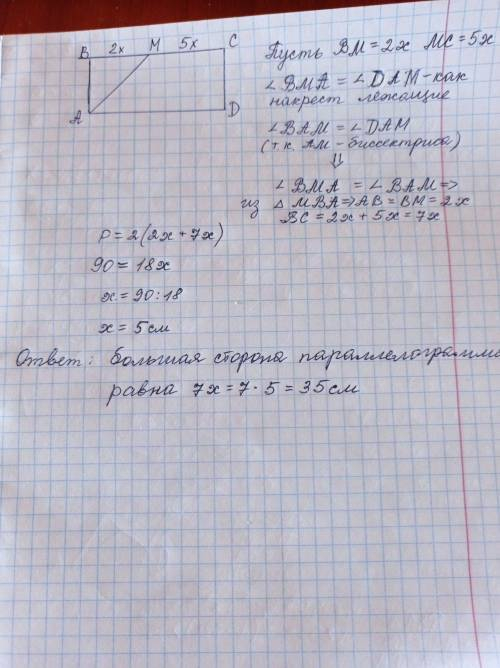 B 2x M 5x C
A D
Пусть BM = 2x MC = 5x
∠BMA = ∠DAM - как
накрест лежащие
∠BAM = ∠DAM
(т.к. AM - биссектриса)
⇓
∠BMA = ∠BAM =>
из △ MBA => AB = BM = 2x
BC = 2x + 5x = 7x
P = 2(2x + 7x)
90 = 18x
x = 90 : 18
x = 5 см
Ответ: большая сторона параллелограмма
равна 7x = 7 · 5 = 35 см